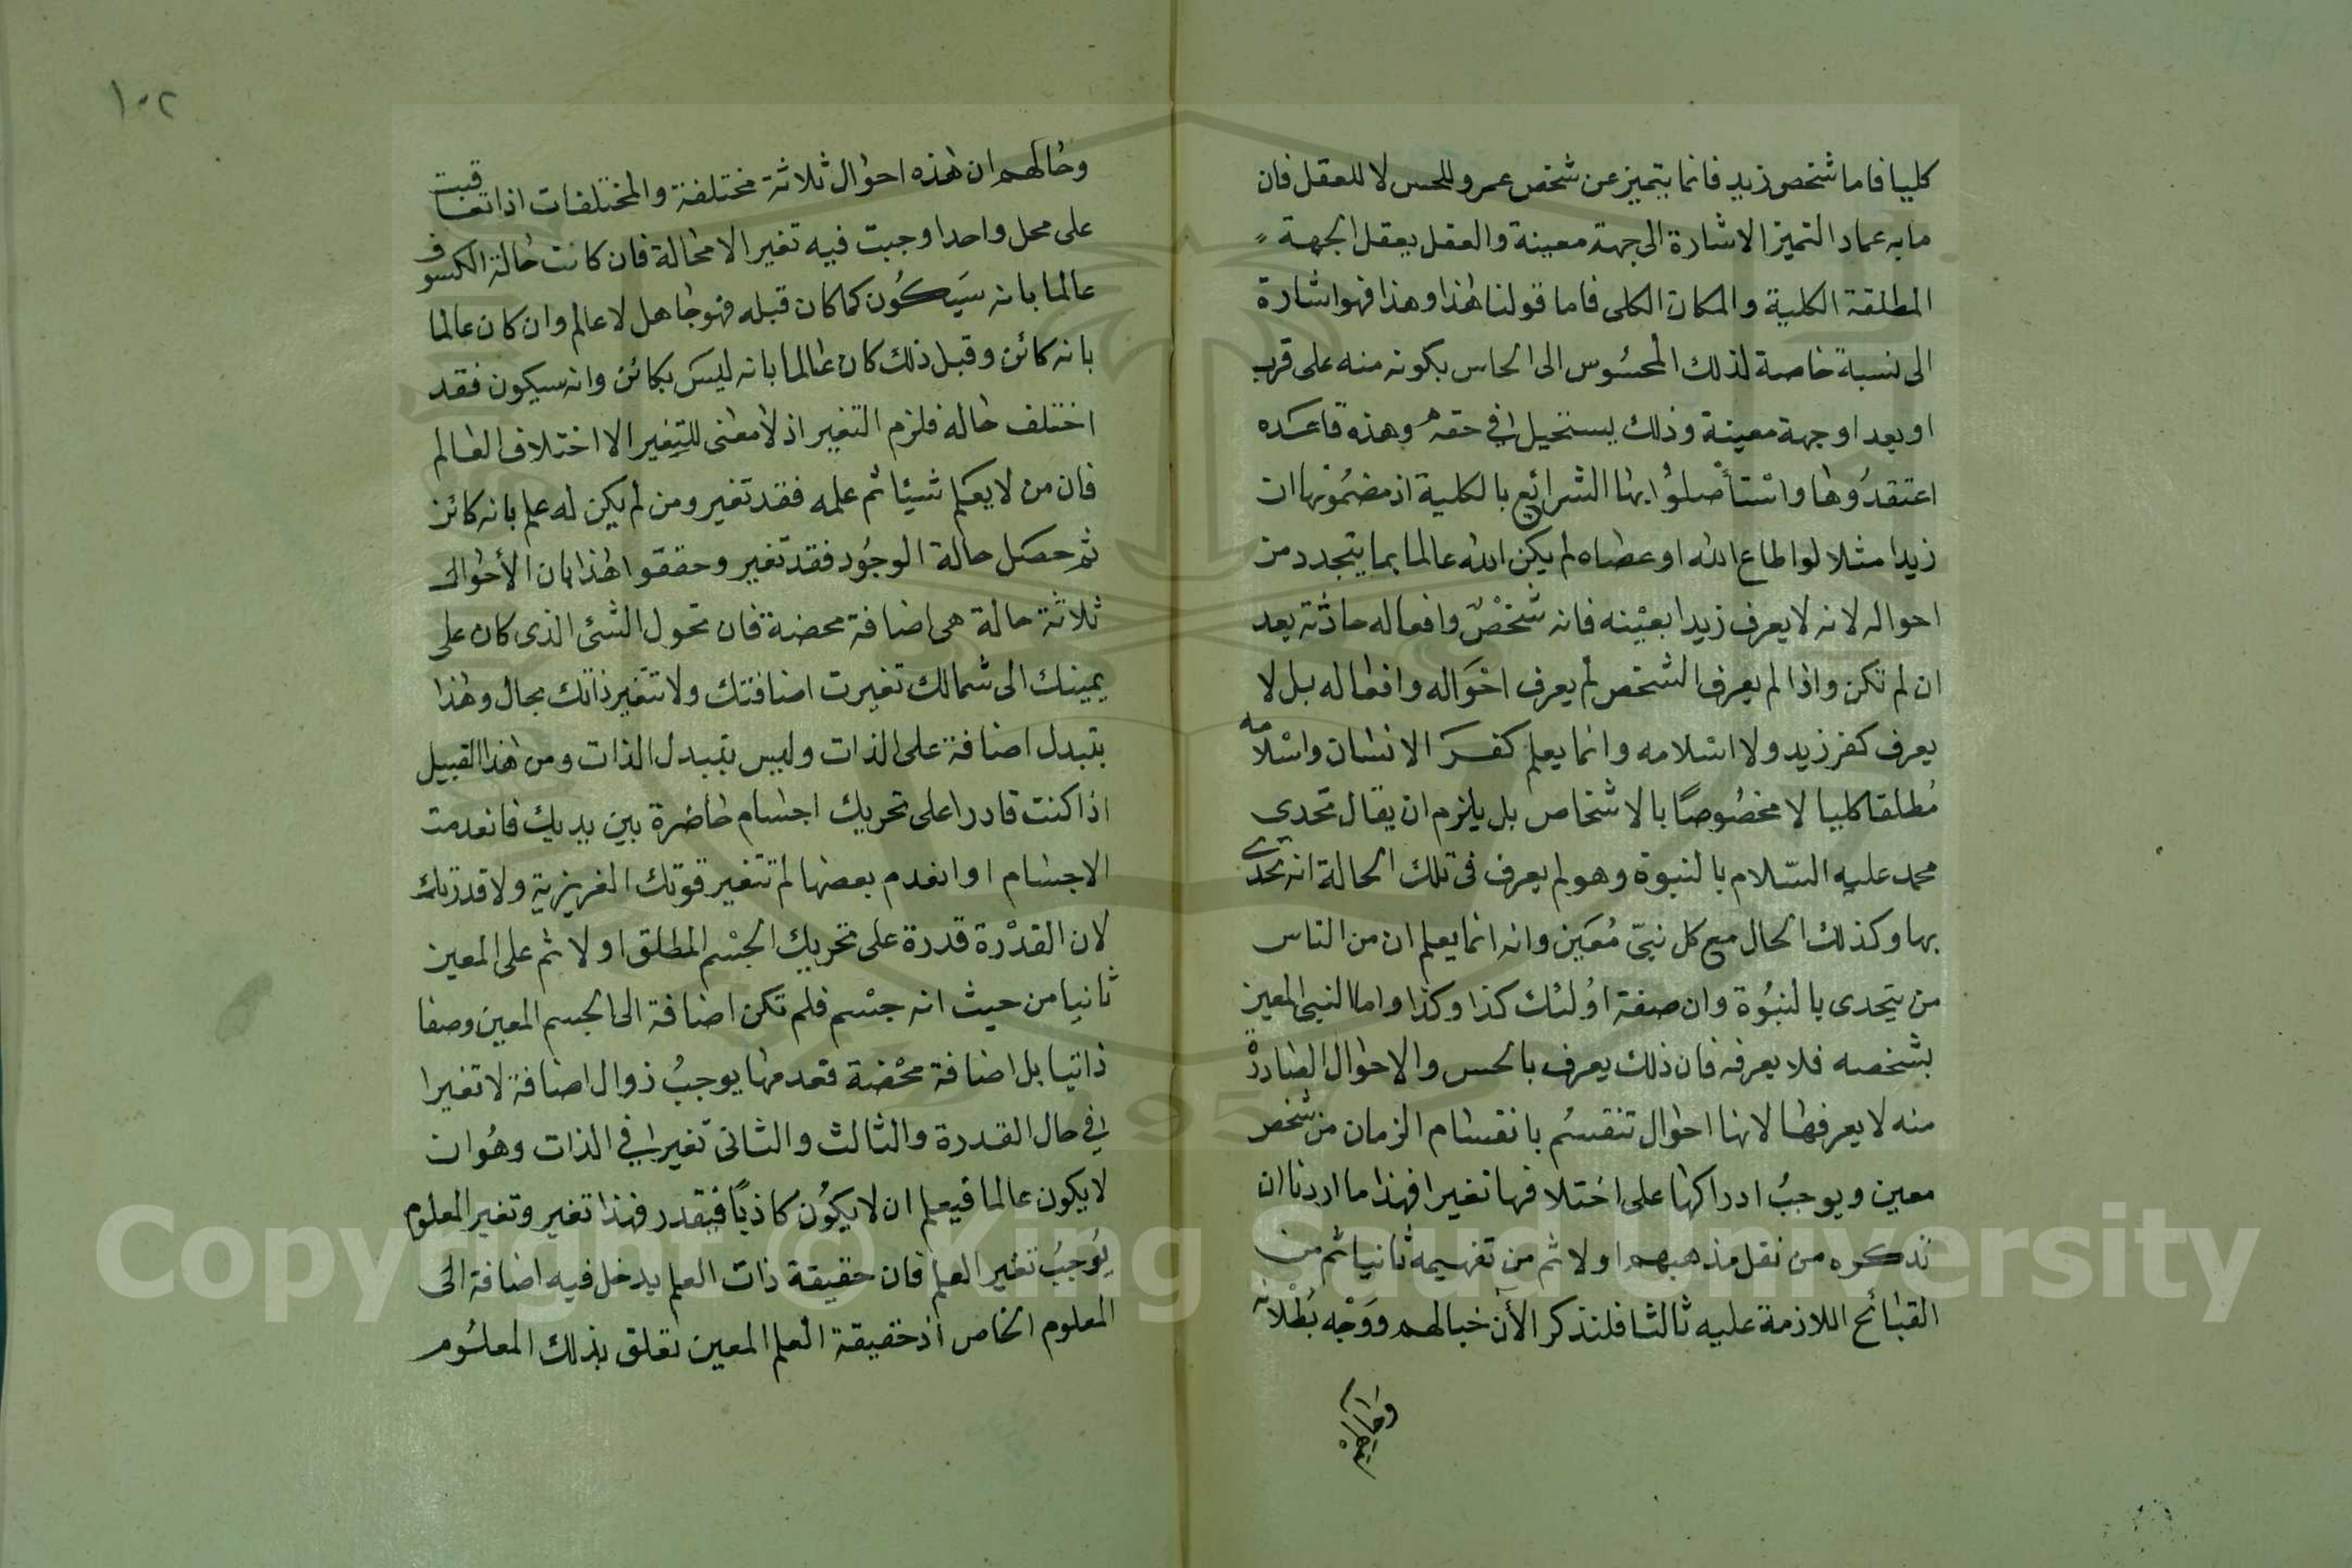 كليا فاما شخص زيد فانما يتميز عن شخص عمرو للحس لا للعقل فان
ما به عماد التميز الاشارة الى جهة معينة والعقل يعقل الجهة
المطلقة الكلية والمكان الكلى فاما قولنا هذا وهذا فهو اشارة
الى نسبة خاصة لذلك المحسوس الى الحاس بكونه منه على قرب
او بعد او جهة معينة وذلك يستحيل في حقه وهذه قاعدة
اعتقدوها واستأصلوا بها الشرائع بالكلية اذ مضمونها ان
زيدا مثلا لو اطاع الله او عصاه لم يكن الله عالما بما يتجدد من
احواله لانه لا يعرف زيدا بعينه فانه شخص وافعاله حادثة بعد
ان لم تكن واذا لم يعرف الشخص لم يعرف احواله وافعاله بل لا
يعرف كفر زيد ولا اسلامه وانما يعلم كفر الانسان واسلامه
مطلقا كليا لا مخصوصا بالاشخاص بل يلزم ان يقال تحدى
محمد عليه السلام بالنبوة وهو لم يعرف فى تلك الحالة انه تحدى
بها وكذلك الحال مع كل نبى معين وانه انما يعلم ان من الناس
من يتحدى بالنبوة وان صفة اولئك كذا وكذا واما النبى المعين
بشخصه فلا يعرفه فان ذلك يعرف بالحس والاحوال الصادرة
منه لا يعرفها لانها احوال تنقسم بانقسام الزمان من شخص
معين ويوجب ادراكها على اختلافها تغيرا فهذا ما اردنا ان
نذكره من نقل مذهبهم اولا ثم من تفهيمه ثانيا ثم من
القبائح اللازمة عليه ثالثا فلنذكر الأن خبالهم ووجه بطلانه
١٠٢
وخالهم ان هذه احوال ثلاثة مختلفة والمختلفات اذا تعاقبت
على محل واحد اوجبت فيه تغيرا لا محالة فان كانت حالة الكسوف
عالما بانه سيكون كما كان قبله فهو جاهل لا عالم وان كان عالما
بانه كائن وقبل ذلك كان عالما بانه ليس بكائن وانه سيكون فقد
اختلف حاله فلزم التغير اذ لا معنى للتغير الا اختلاف العالم
فان من لا يعلم شيئا ثم علمه فقد تغير ومن لم يكن له علم بانه كائن
ثم حصل حالة الوجود فقد تغير وحققوا هذا بان الأحوال
ثلاثة حالة هى اضافة محضة فان تحول الشئ الذى كان على
يمينك الى شمالك تغيرت اضافتك ولا تتغير ذاتك بحال وهذا
بتبدل اضافة على الذات وليس بتبدل الذات ومن هذا القبيل
اذا كنت قادرا على تحريك اجسام حاضرة بين يديك فانعدمت
الاجسام او انعدم بعضها لم تتغير قوتك الغريزية ولا قدرتك
لان القدرة قدرة على تحريك الجسم المطلق اولا ثم على المعين
ثانيا من حيث انه جسم فلم تكن اضافة الى الجسم المعين وصفا
ذاتيا بل اضافة محضة فعدمها يوجب زوال اضافة لا تغيرا
في حال القدرة والثالث والثانى تغير في الذات وهو ان
لا يكون عالما فيعلم ان لا يكون كاذبا فيقدر فهذا تغير وتغير المعلوم
يوجب تغير العلم فان حقيقة ذات العلم يدخل فيه اضافة الى
المعلوم الخاص اذ حقيقة العلم المعين تعلق بذلك المعلوم
Copyright © King Saud University
1957